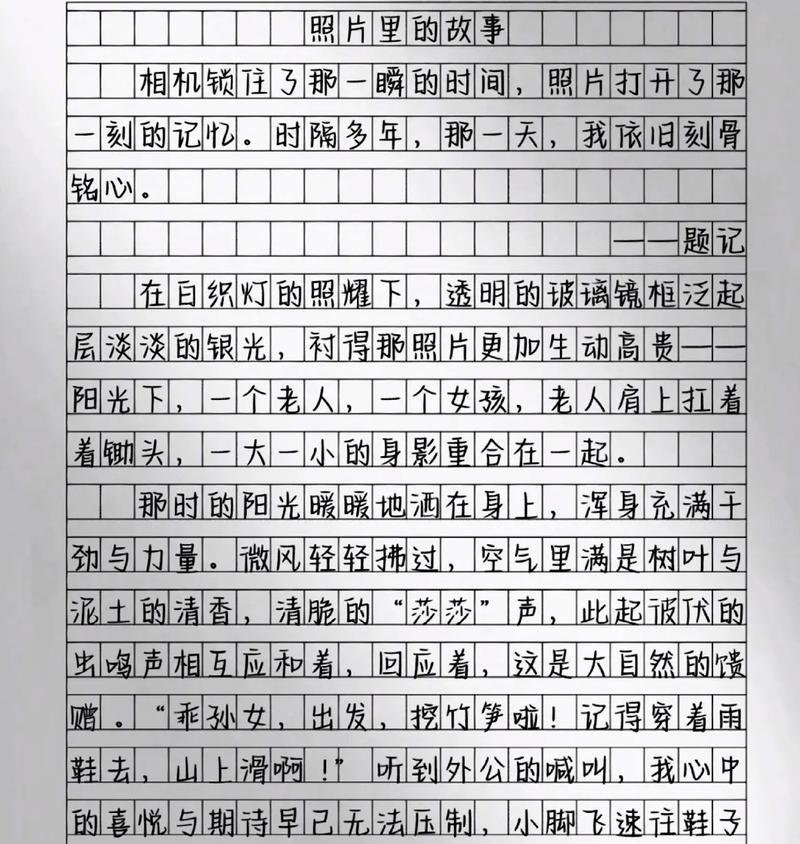 照片里的故事
相机锁住了那一瞬的时间，照片打开了那
一刻的记忆。时隔多年，那一天，我依旧刻骨
铭心。
——题记
在白织灯的照耀下，透明的玻璃镜框泛起
层淡淡的银光，衬得那照片更加生动高贵——
阳光下，一个老人，一个女孩，老人肩上扛着
着锄头，一大一小的身影重合在一起。
那时的阳光暖暖地洒在身上，浑身充满干
劲与力量。微风轻轻拂过，空气里满是树叶与
泥土的清香，清脆的“莎莎”声，此起彼伏的
出鸣声相互应和着，回应着，这是大自然的馈
赠。“乖孙女，出发，挖竹笋啦！记得穿着雨
鞋去，山上滑啊！”听到外公的喊叫，我心中
的喜悦与期待早已无法压制，小脚飞速往鞋子